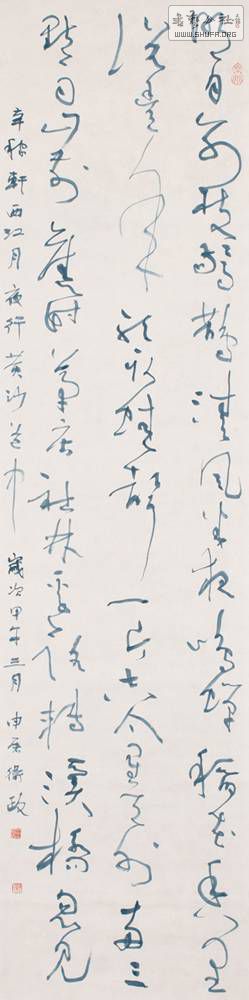 書法公社
WWW.SHUFA.ORG
明月別枝驚鵲清風半夜鳴蟬稻花香里
說豐年聽取蛙聲一片七八个星天外兩三
點雨山前舊時茅店社林邊路轉溪橋忽見
辛稼軒西江月夜行黃沙道中 歲次甲午三月